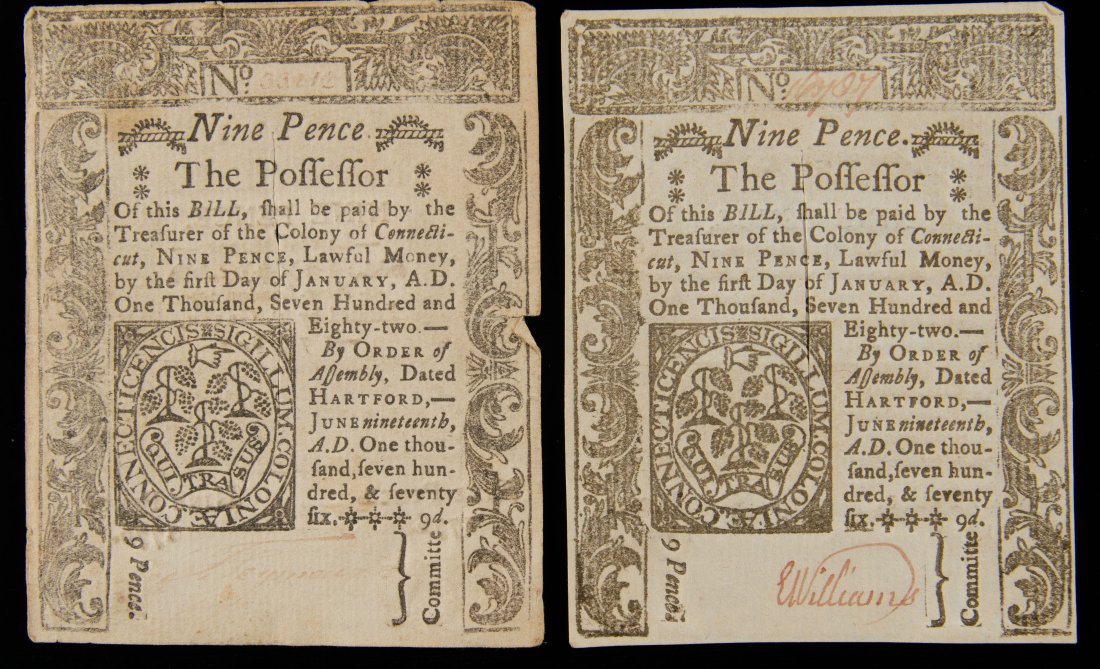 No
Nine Pence.
The Poſſeſſor
Of this BILL, ſhall be paid by the
Treaſurer of the Colony of Connecti-
cut, NINE PENCE, Lawful Money,
by the firſt Day of JANUARY, A.D.
One Thouſand, Seven Hundred and
Eighty-two.—
By ORDER of
Aſſembly, Dated
HARTFORD,—
JUNE nineteenth,
A.D. One thou-
ſand, ſeven hun-
dred, & ſeventy
ſix. 9d.
SIGILLUM. COLONIÆ. CONNECTICENCIS
QUI TRA SUS
9 Pence.
Committe
No
Nine Pence.
The Poſſeſſor
Of this BILL, ſhall be paid by the
Treaſurer of the Colony of Connecti-
cut, NINE PENCE, Lawful Money,
by the firſt Day of JANUARY, A.D.
One Thouſand, Seven Hundred and
Eighty-two.—
By ORDER of
Aſſembly, Dated
HARTFORD,—
JUNE nineteenth,
A.D. One thou-
ſand, ſeven hun-
dred, & ſeventy
ſix. 9d.
SIGILLUM. COLONIÆ. CONNECTICENCIS
QUI TRA SUS
9 Pence.
EWilliams
Committe